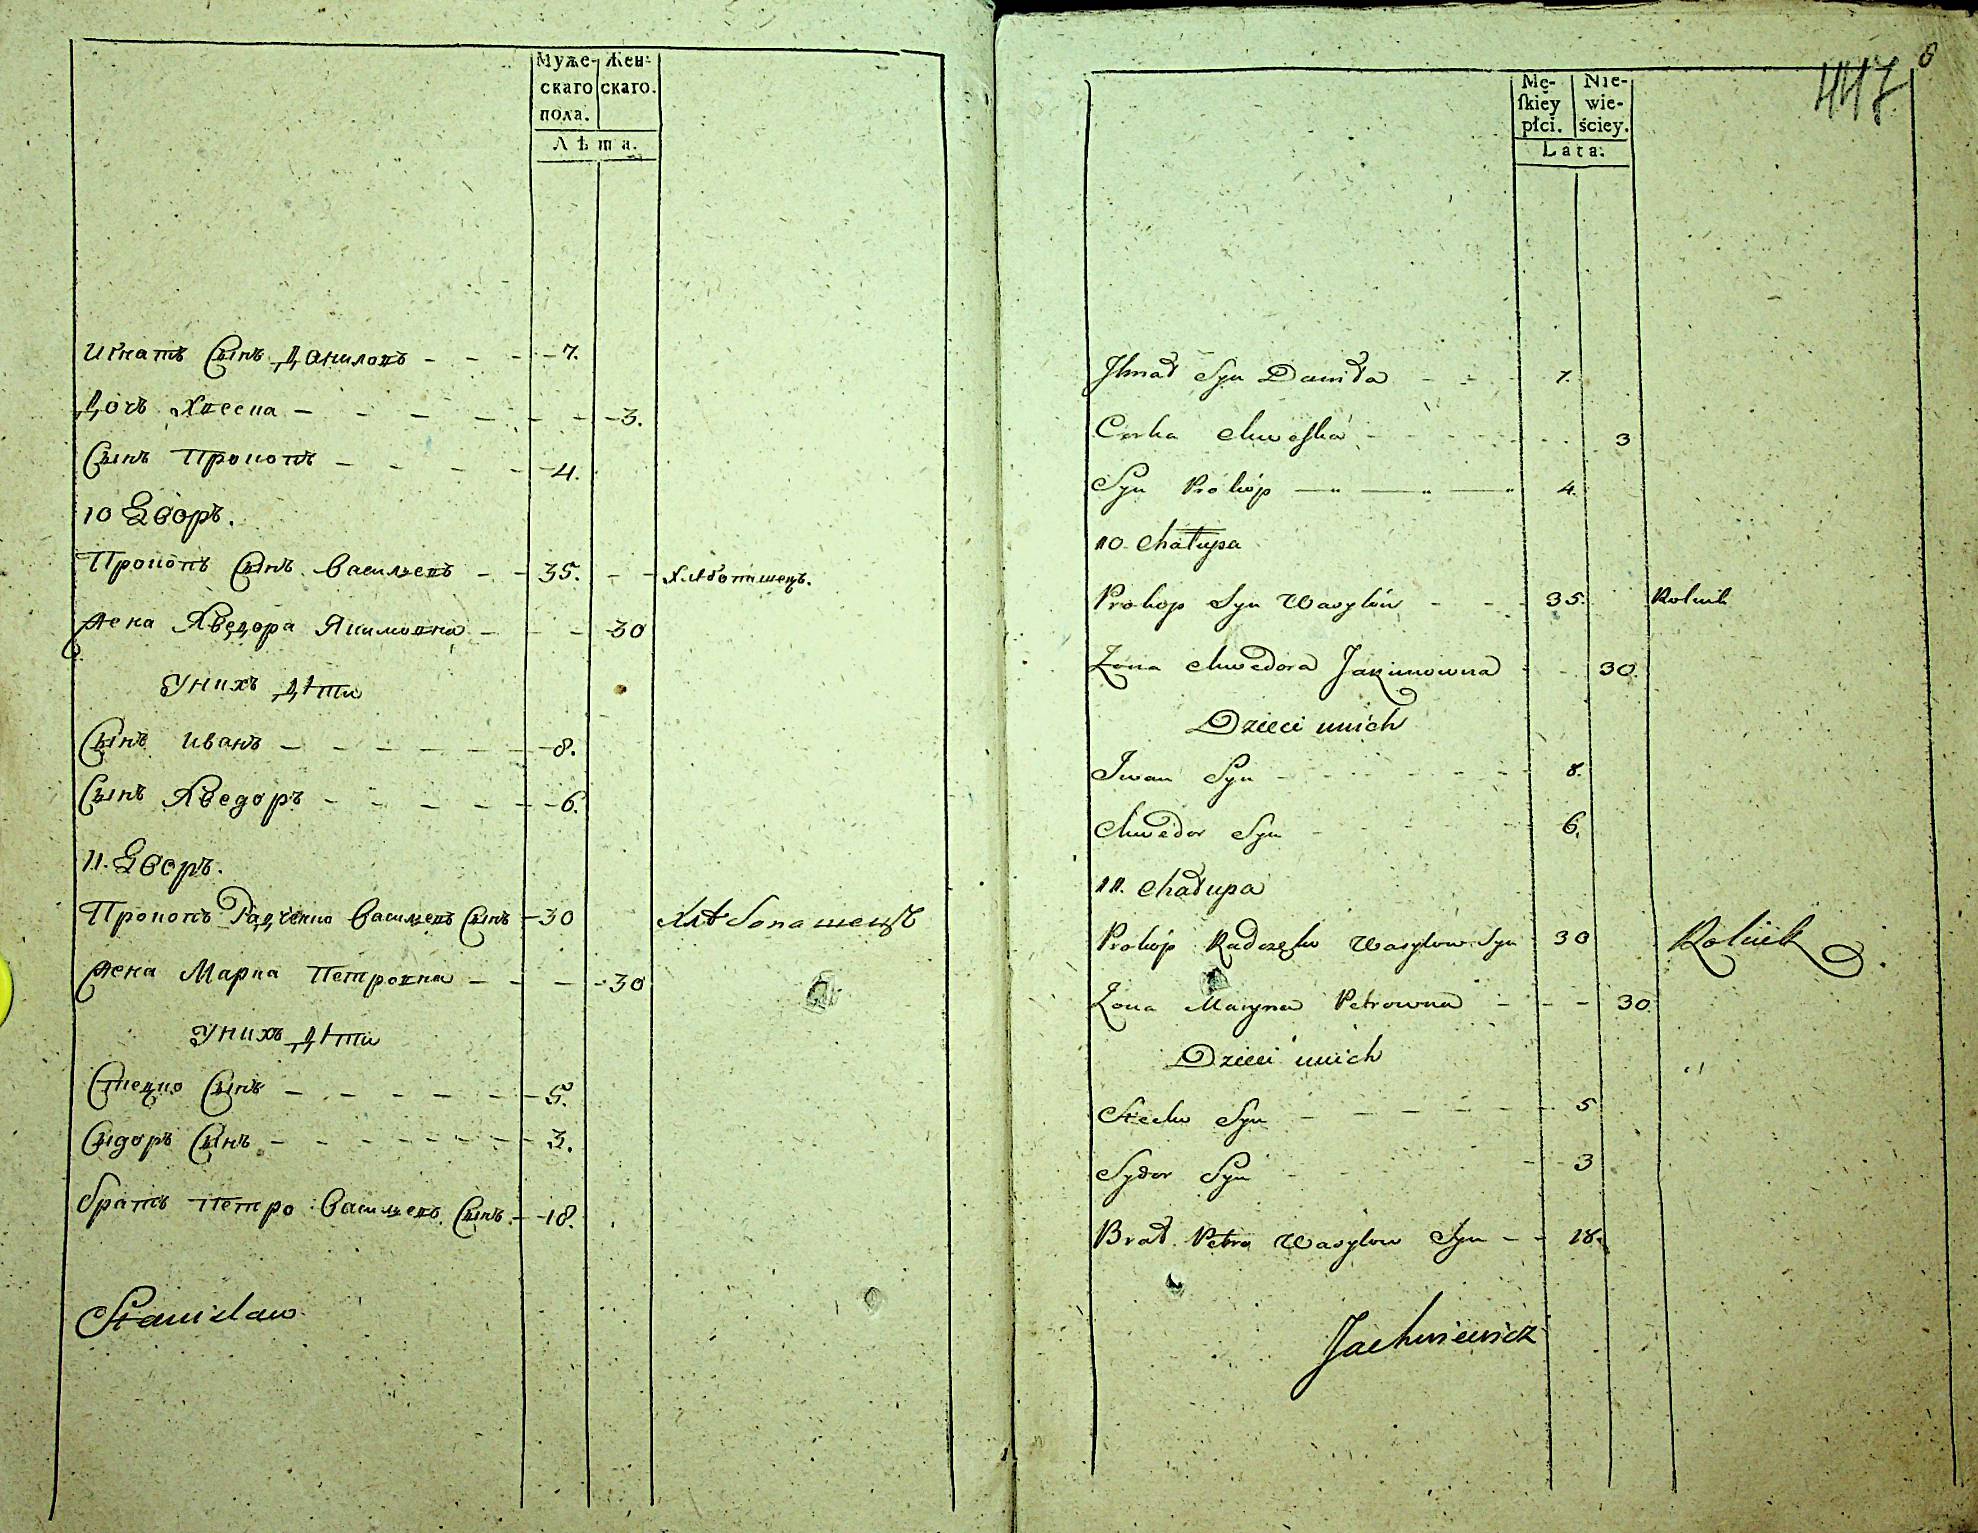 Муже- Жен-
скаго скаго.
пола.
Лѣта.
Игнатъ Сынъ Даниловъ - - - 7.
Дочъ Хвеска - - - - - - 3.
Сынъ Прокопъ - - - - 4.
10 Дворъ.
Прокопъ Сынъ Васильевъ - - 35. - - Хлѣбопашецъ.
Жена Хведора Якимовна - - - 30
Унихъ дѣти
Сынъ Иванъ - - - - - - 8.
Сынъ Хведоръ - - - - - 6.
11. Дворъ.
Прокопъ Радченко Васильевъ Сынъ - 30 Хлѣбопашецъ
Жена Марна Петровна - - - - 30
Унихъ дѣти
Стецко Сынъ - - - - - - 5.
Сидоръ Сынъ - - - - - - - 3.
Братъ Петро Васильевъ Сынъ. - - 18.
Stanisław
8
447
Mę- Nie-
ſkiey wie-
płci. ściey.
Lata.
Ihnat Syn Daniła - - - 7.
Corka Chweſka - - - - - 3
Syn Prokóp — „ — „ — „ 4.
10. Chałupa
Prokop Syn Wasylów - - - 35. Rolnik
Żona Chwedora Jakimowna - - 30.
Dzieci unich
Iwan Syn - - - - - - 8.
Chwedor Syn - - - - 6.
11. Chałupa
Prokóp Radczęko Wasylow Syn 30 Rolnik
Żona Maryna Petrowna - - - 30.
Dzieci unich
Stecko Syn - - - - - - 5
Sydor Syn - - - - - 3
Brat Petro Wasylow Syn - - 18.
Jachniewicz